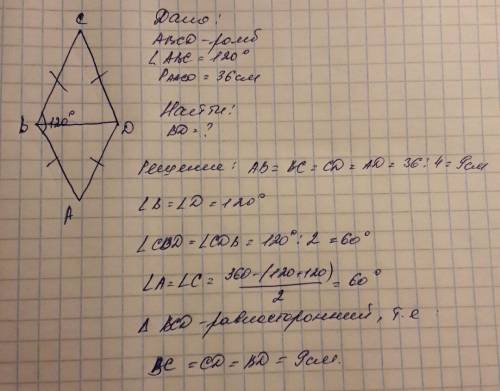 C
B
120°
D
A
Дано:
ABCD - ромб
∠ABC = 120°
P ABCD = 36см
Найти:
BD = ?
Решение: AB = BC = CD = AD = 36 : 4 = 9см
∠B = ∠D = 120°
∠CBD = ∠CDB = 120° : 2 = 60°
∠A = ∠C = 360-(120+120)/2 = 60°
Δ BCD - равносторонний, т.е
BC = CD = BD = 9см.